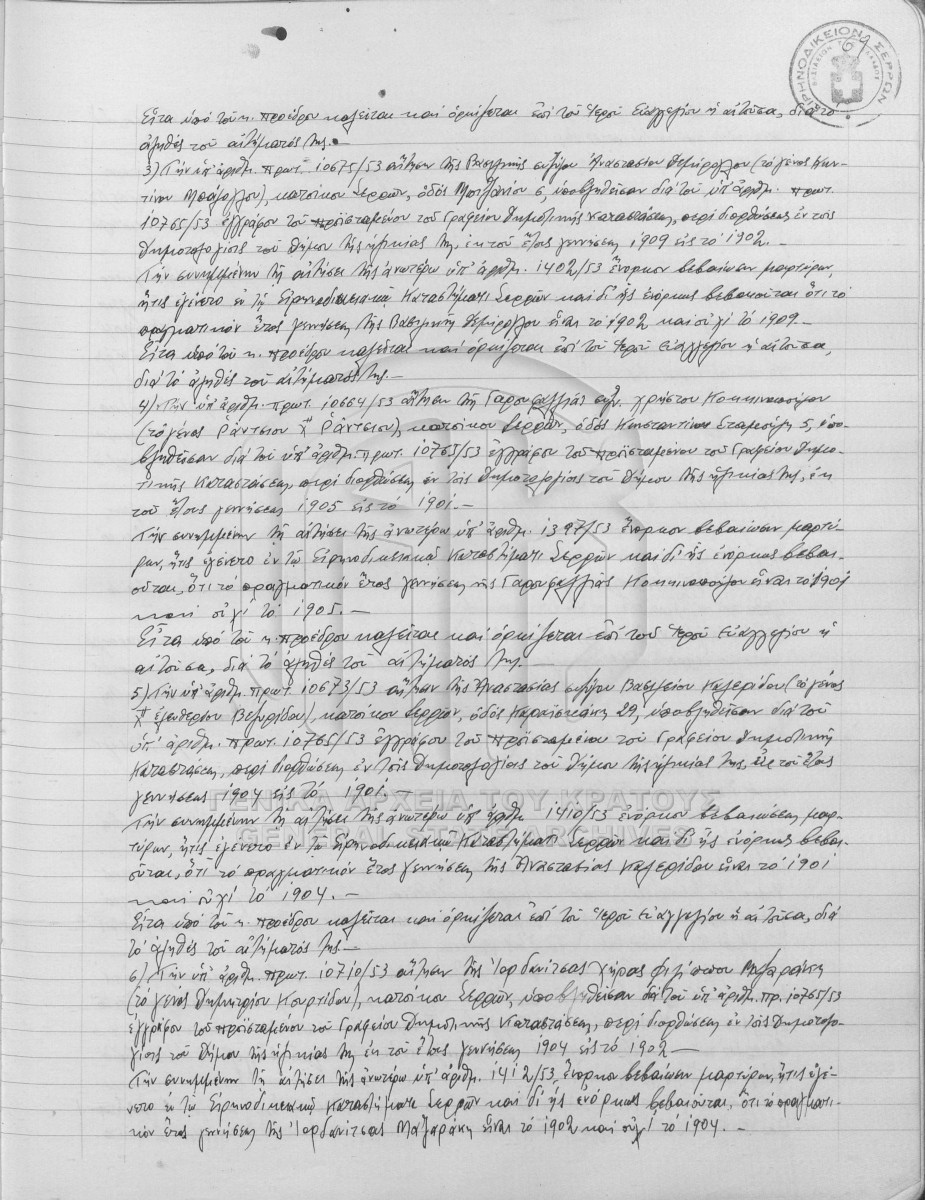 ΕΙΡΗΝΟΔΙΚΕΙΟΝ ΣΕΡΡΩΝ
Εἶτα ὑπό τοῦ κ. προέδρου καλεῖται καί ὁρκίζεται ἐπί τοῦ Ἱεροῦ Εὐαγγελίου ἡ αἰτοῦσα, διά τό
ἀληθές τοῦ αἰτήματός της.-
3) Τήν ὑπ' ἀριθμ. πρωτ. 10675/53 αἴτησιν τῆς Βασιλικῆς συζύγου Ἀναστασίου Δεμίρογλου (τό γένος
), κατοίκου Σερρῶν, ὁδός 6, ὑποβληθεῖσαν διά τοῦ ὑπ' ἀριθμ. πρωτ.
10765/53 ἐγγράφου τοῦ προϊσταμένου τοῦ Γραφείου Δημοτικῆς Καταστάσεως, περί διορθώσεως ἐν τοῖς
Δημοτολογίοις τοῦ Δήμου τῆς ἡλικίας της, ἐκ τοῦ ἔτους γεννήσεως 1909 εἰς τό 1902.-
Τήν συνημμένην τῇ αἰτήσει τῆς ἀνωτέρω ὑπ' ἀριθμ. 1402/53 ἔνορκον βεβαίωσιν μαρτύρων,
ἥτις ἐγένετο ἐν τῷ Εἰρηνοδικειακῷ Καταστήματι Σερρῶν καί δι' ἧς ἐνόρκως βεβαιοῦται ὅτι τό
πραγματικόν ἔτος γεννήσεως τῆς Βασιλικῆς Δεμίρογλου εἶναι τό 1902 καί οὐχί τό 1909.-
Εἶτα ὑπό τοῦ κ. προέδρου καλεῖται καί ὁρκίζεται ἐπί τοῦ Ἱεροῦ Εὐαγγελίου ἡ αἰτοῦσα,
διά τό ἀληθές τοῦ αἰτήματός της.-
4) Τήν ὑπ' ἀριθμ. πρωτ. 10664/53 αἴτησιν τῆς Γαρουφαλλιᾶς συζ. Χρήστου Κοκκινοπούλου
(τό γένος Ράντσιου ἤ Ράντσιου), κατοίκου Σερρῶν, ὁδός Κωνσταντίνου Σταμούλη 5, ὑπο-
βληθεῖσαν διά τοῦ ὑπ' ἀριθμ. πρωτ. 10765/53 ἐγγράφου τοῦ προϊσταμένου τοῦ Γραφείου Δημο-
τικῆς Καταστάσεως, περί διορθώσεως ἐν τοῖς Δημοτολογίοις τοῦ Δήμου τῆς ἡλικίας της, ἐκ
τοῦ ἔτους γεννήσεως 1905 εἰς τό 1901.-
Τήν συνημμένην τῇ αἰτήσει τῆς ἀνωτέρω ὑπ' ἀριθμ. 1397/53 ἔνορκον βεβαίωσιν μαρτύ-
ρων, ἥτις ἐγένετο ἐν τῷ Εἰρηνοδικειακῷ Καταστήματι Σερρῶν καί δι' ἧς ἐνόρκως βεβαι-
οῦται, ὅτι τό πραγματικόν ἔτος γεννήσεως τῆς Γαρουφαλλιᾶς Κοκκινοπούλου εἶναι τό 1901
καί οὐχί τό 1905.-
Εἶτα ὑπό τοῦ κ. προέδρου καλεῖται καί ὁρκίζεται ἐπί τοῦ Ἱεροῦ Εὐαγγελίου ἡ
αἰτοῦσα, διά τό ἀληθές τοῦ αἰτήματός της.-
5) Τήν ὑπ' ἀριθμ. πρωτ. 10673/53 αἴτησιν τῆς Ἀναστασίας συζύγου Βασιλείου Καλερίδου (τό γένος
Ἐλευθερίου Βεζυρίδου), κατοίκου Σερρῶν, ὁδός Καραϊσκάκη 29, ὑποβληθεῖσαν διά τοῦ
ὑπ' ἀριθμ. πρωτ. 10765/53 ἐγγράφου τοῦ προϊσταμένου τοῦ Γραφείου Δημοτικῆς
Καταστάσεως, περί διορθώσεως ἐν τοῖς Δημοτολογίοις τοῦ Δήμου τῆς ἡλικίας της, ἐκ τοῦ ἔτους
γεννήσεως 1904 εἰς τό 1901.-
ΓΕΝΙΚΑ ΑΡΧΕΙΑ ΤΟΥ ΚΡΑΤΟΥΣ
GENERAL STATE ARCHIVES
Τήν συνημμένην τῇ αἰτήσει τῆς ἀνωτέρω ὑπ' ἀριθμ. 1410/53 ἔνορκον βεβαίωσιν μαρ-
τύρων, ἥτις ἐγένετο ἐν τῷ Εἰρηνοδικειακῷ Καταστήματι Σερρῶν καί δι' ἧς ἐνόρκως βεβαι-
οῦται, ὅτι τό πραγματικόν ἔτος γεννήσεως τῆς Ἀναστασίας Καλερίδου εἶναι τό 1901
καί οὐχί τό 1904.-
Εἶτα ὑπό τοῦ κ. προέδρου καλεῖται καί ὁρκίζεται ἐπί τοῦ Ἱεροῦ Εὐαγγελίου ἡ αἰτοῦσα, διά
τό ἀληθές τοῦ αἰτήματός της.-
6) Τήν ὑπ' ἀριθμ. πρωτ. 10710/53 αἴτησιν τῆς Ἰορδανίτσας χήρας Φιλίππου Μαζαράκη
(τό γένος Δημητρίου Κουρτίδου), κατοίκου Σερρῶν, ὑποβληθεῖσαν διά τοῦ ὑπ' ἀριθμ. πρ. 10765/53
ἐγγράφου τοῦ προϊσταμένου τοῦ Γραφείου Δημοτικῆς Καταστάσεως, περί διορθώσεως ἐν τοῖς Δημοτολο-
γίοις τοῦ Δήμου τῆς ἡλικίας της ἐκ τοῦ ἔτους γεννήσεως 1904 εἰς τό 1902.-
Τήν συνημμένην τῇ αἰτήσει τῆς ἀνωτέρω ὑπ' ἀριθμ. 1412/53, ἔνορκον βεβαίωσιν μαρτύρων, ἥτις ἐγέ-
νετο ἐν τῷ Εἰρηνοδικειακῷ Καταστήματι Σερρῶν καί δι' ἧς ἐνόρκως βεβαιοῦται, ὅτι τό πραγματι-
κόν ἔτος γεννήσεως τῆς Ἰορδανίτσας Μαζαράκη εἶναι τό 1902 καί οὐχί τό 1904.-